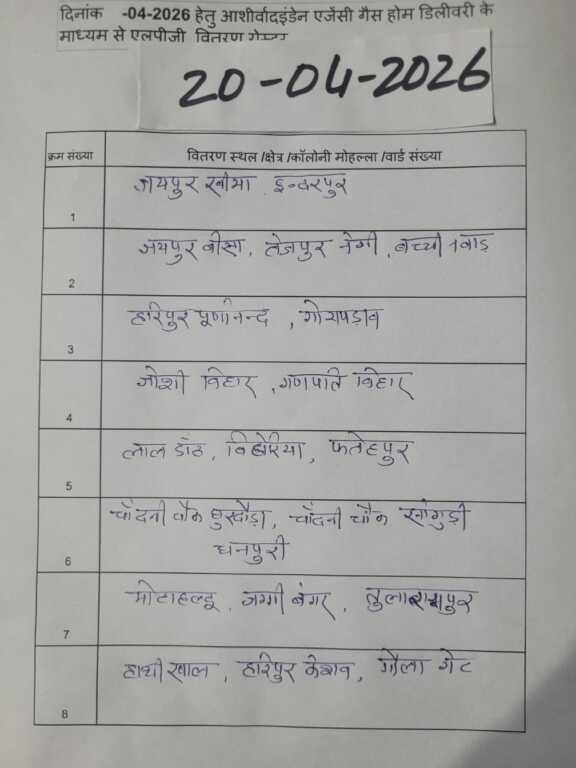 दिनांक -04-2026 हेतु आशीर्वादइंडेन एजेंसी गैस होम डिलीवरी के
माध्यम से एलपीजी वितरण
20-04-2026
क्रम संख्या वितरण स्थल /क्षेत्र /कॉलोनी मोहल्ला /वार्ड संख्या
1 जयपुर खीमा, इन्दरपुर
2 जयपुर बीसा, तेजपुर नेगी, बच्ची नवाड
3 हरिपुर पूर्णानन्द, गोरापड़ाव
4 जोशी विहार, गणपति विहार
5 लाल डाँठ, बिठौरिया, फतेहपुर
6 चाँदनी चौक घुड़दौड़ा, चाँदनी चौक
धनपुरी
7 मोटाहल्दू, जग्गी बंगर, तुलारामपुर
8 हाथी खाल, हरिपुर केशव, गौला गेट